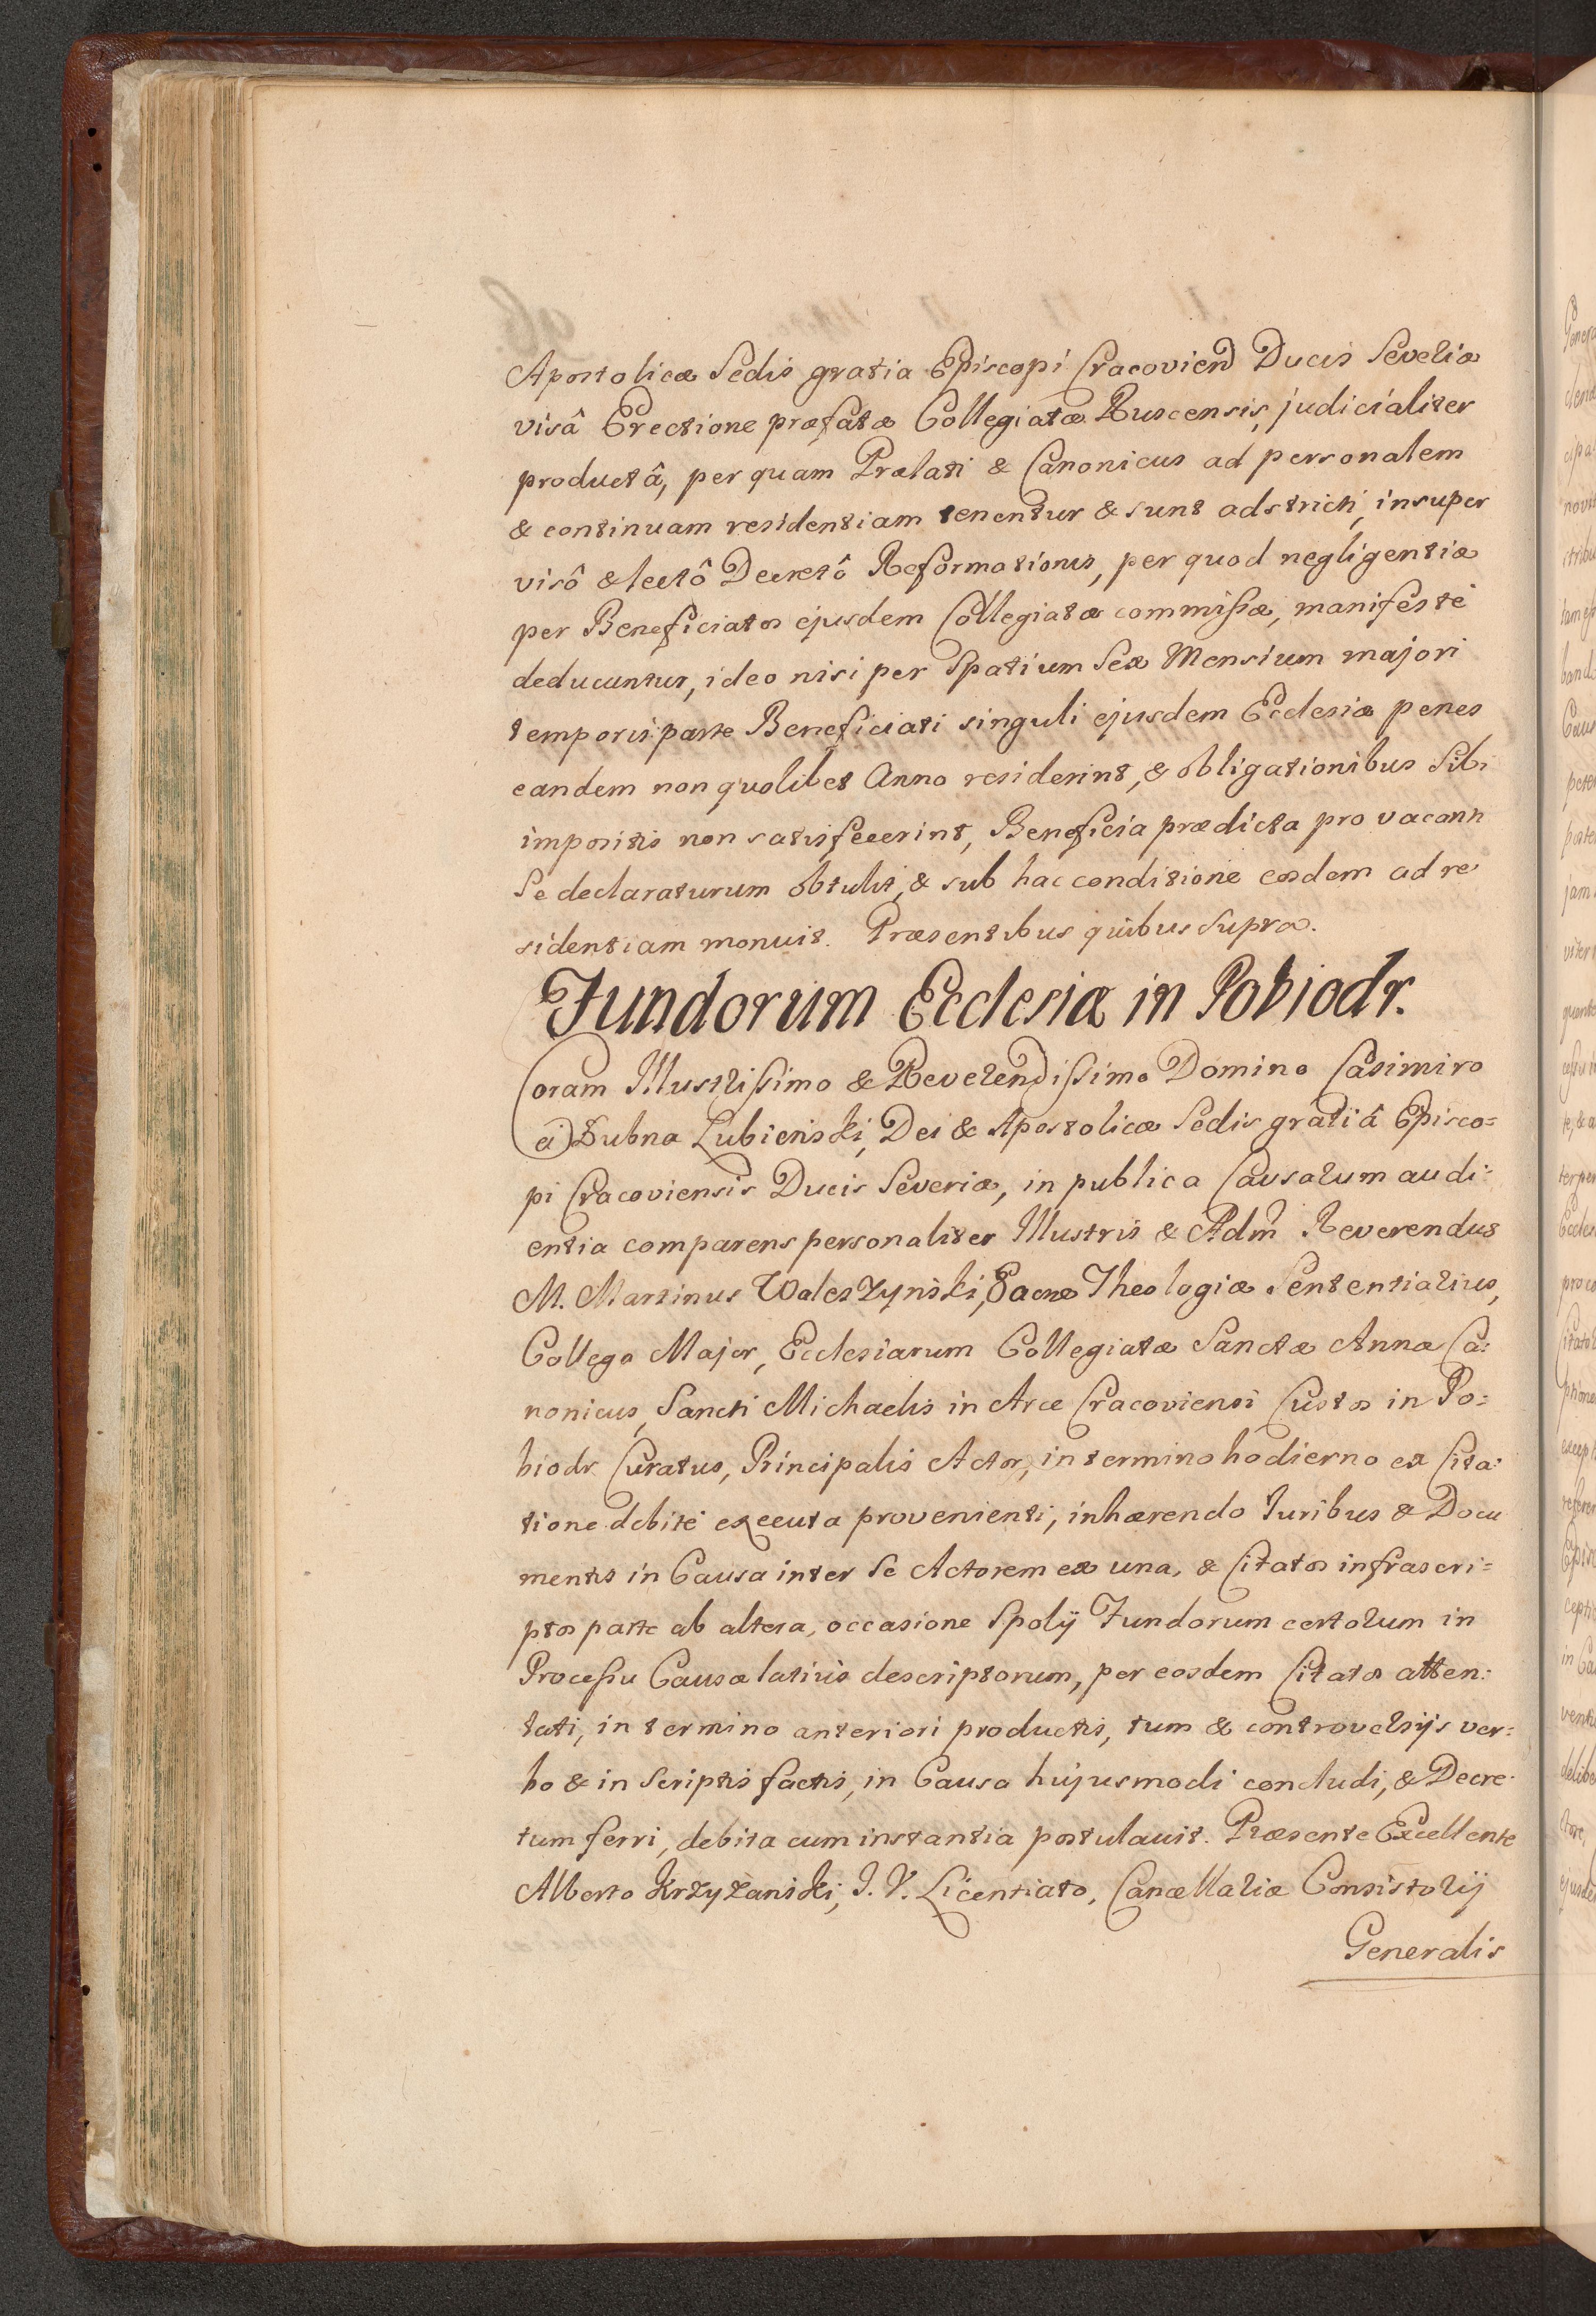 Apostolicæ Sedis gratia Episcopi Cracovien Ducis Severiæ
visâ Erectione præfatæ Collegiatæ Ruscensis, judicialiter
productâ, per quam Prælati & Canonicus ad personalem
& continuam residentiam tenentur & sunt adstricti, insuper
visô & lectô Decretô Reformationis, per quod negligentiæ
per Beneficiatos ejusdem Collegiatæ commißæ, manifestè
deducuntur, ideo nisi per Spatium Sex Mensium majori
temporis parte Beneficiati singuli ejusdem Ecclesiæ penes
eandem non quolibet Anno residerint, & obligationibus Sibi
impositis non satisfecerint, Beneficia prædicta pro vacanti
Se declaraturum obtulit, & sub hac conditione eosdem ad re
sidentiam monuit. Præsentibus quibus Supra.
Fundorum Ecclesiæ in Pobiodr.
Coram Illustrißimo & Reverendißimo Domino Casimiro
a Lubna Lubieński, Dei & Apostolicæ Sedis gratiâ Episco=
pi Cracoviensis Ducis Severiæ, in publica Causarum audi:
entia comparens personaliter Illustris & Adm Reverendus
M. Martinus Waleszyński, Sacræ Theologiæ Sententiarius,
Collega Major, Ecclesiarum Collegiatæ Sanctæ Annæ Ca:
nonicus, Sancti Michaelis in Arce Cracoviensi Custos in Po=
biodr Curatus, Principalis Actor, in termino hodierno ex Cita:
tione debitè executa provenienti, inhærendo Juribus & Docu
mentis in Causa inter Se Actorem ex una, & Citatos infrascri=
ptos parte ab altera, occasione Spolÿ Fundorum certorum in
Proceßu Causæ latiùs descriptorum, per eosdem Citatos atten:
tati, in termino anteriori productis, tum & controversijs ver:
bo & in Scriptis factis, in Causa hujusmodi concludi, & Decre:
tum ferri, debita cum instantia postulavit. Præsente Excellente
Alberto Krzyżański, J. V. Licentiato, Cancellariæ Consistorij
Generalis